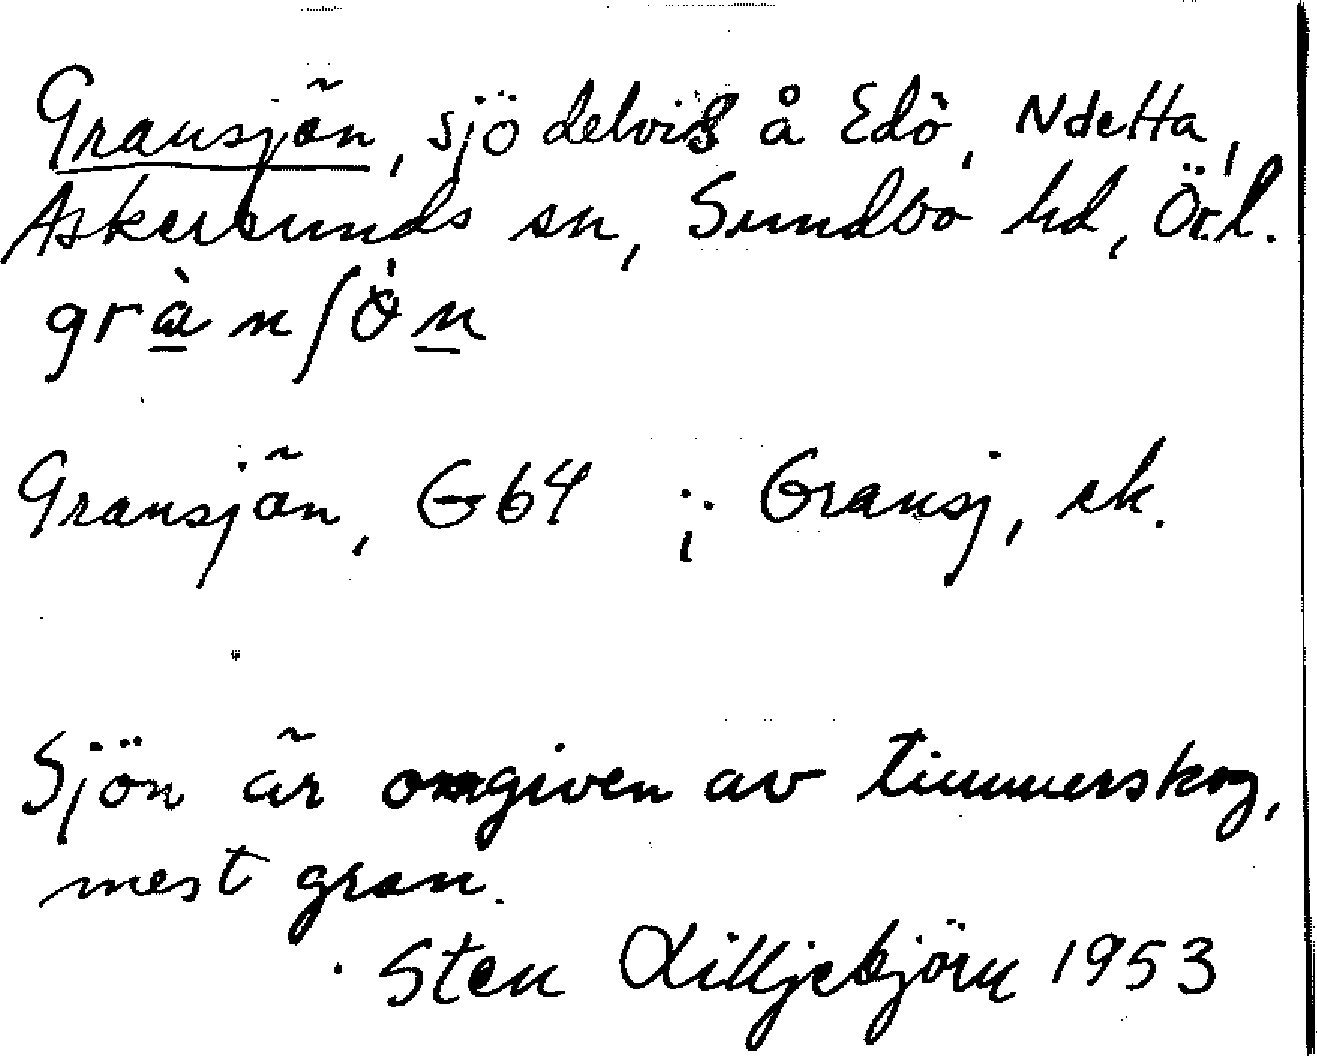 Gransjön, sjö delvis å Edö, Ndetta,
Askersunds sn, Sundbo hd, Ör.l.
grànʃön
Gransjön, G64 ; Gransj, ek.
Sjön är omgiven av timmerskog,
mest gran.
Sten Lilljebjörn 1953